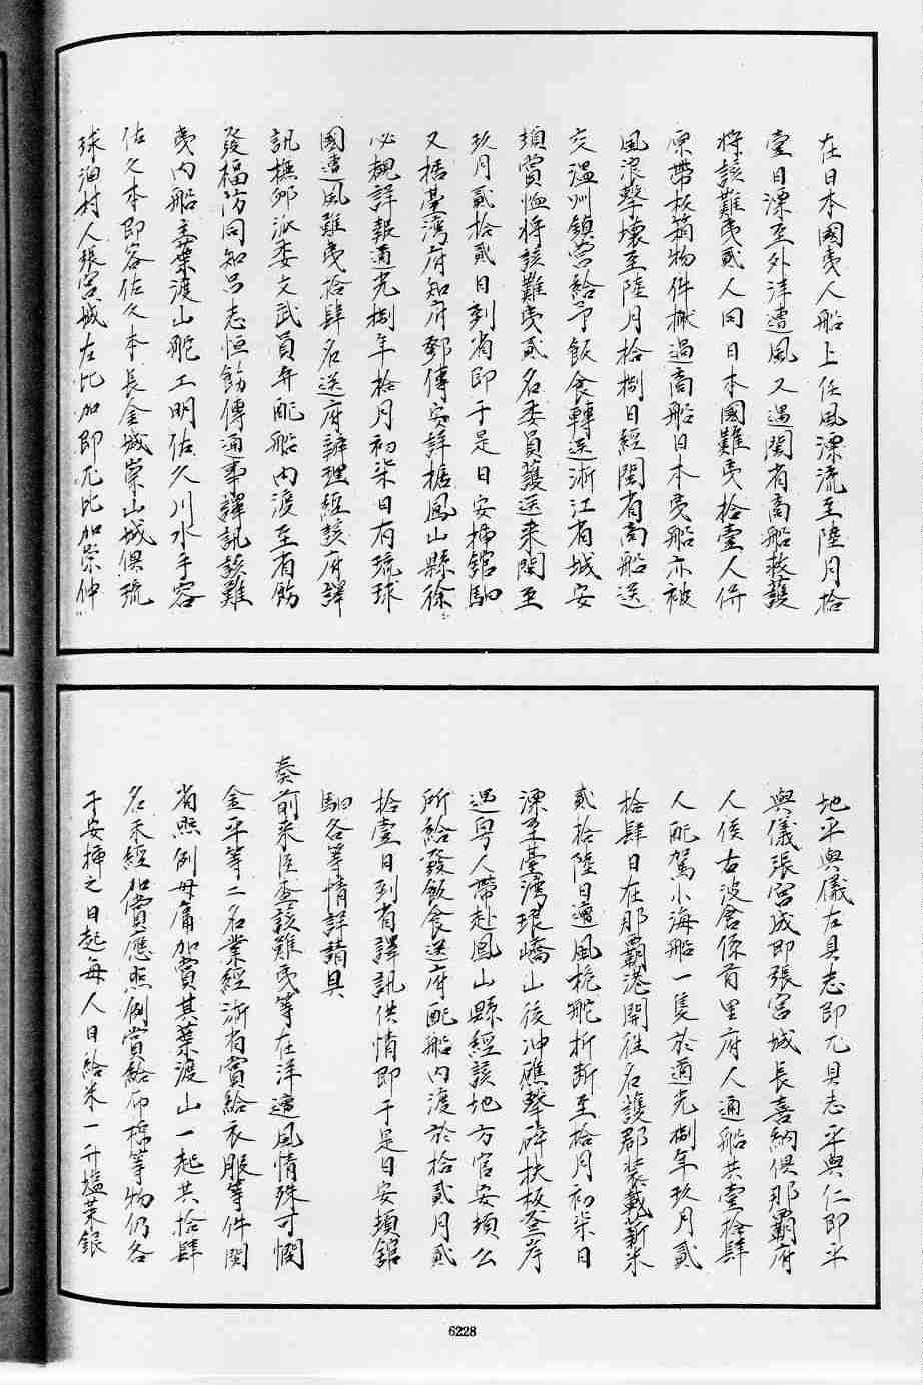 在日本國夷人船上任風漂流至陸月拾
壹日漂至外洋遭風又遇閩省商船救護
將該難夷貳人同日本國難夷拾壹人併
原帶板箱物件搬過商船日本夷船亦被
風浪擊壞至陸月拾捌日經閩省商船送
交溫州鎮營給予飯食轉送浙江省城安
頓賞恤將該難夷貳名委員護送來閩至
玖月貳拾貳日到省即于是日安揷舘馹
又據臺灣府知府鄧傳安詳據鳳山縣徐
必覌詳報道光捌年拾月初柒日有琉球
國遭風難夷拾肆名送府辦理經該府譯
訊撫卹派委文武員弁配船內渡至省飭
發福防同知呂志恒飭傳通事譯訊該難
夷內船主葉渡山舵工明佐久川水手容
佐久本即容佐久本長金城崇山城俱琉
球泊村人張宮城左比加即兀比加崇仲
地平與儀左具志即兀具志平與仁即平
與儀張宮成即張宮城長喜納俱那霸府
人俟古波倉係首里府人通船共壹拾肆
人配駕小海船一隻於道光捌年玖月貳
拾肆日在那霸港開徃名護郡裝載薪米
貳拾陸日遭風桅舵折斷至拾月初柒日
漂至臺灣琅嶠山後冲礁擊碎扶板登岸
遇粤人帶赴鳳山縣經該地方官安頓公
所給發飯食送府配船內渡於拾貳月貳
拾壹日到省譯訊供情即于是日安頓舘
馹各等情詳請具
奏前來臣查該難夷等在洋遭風情殊可憫
金平等二名業經浙省賞給衣服等件閩
省照例毋庸加賞其葉渡山一起共拾肆
名未經加賞應照例賞給布棉等物仍各
于安揷之日起每人日給米一升塩菜銀
6228